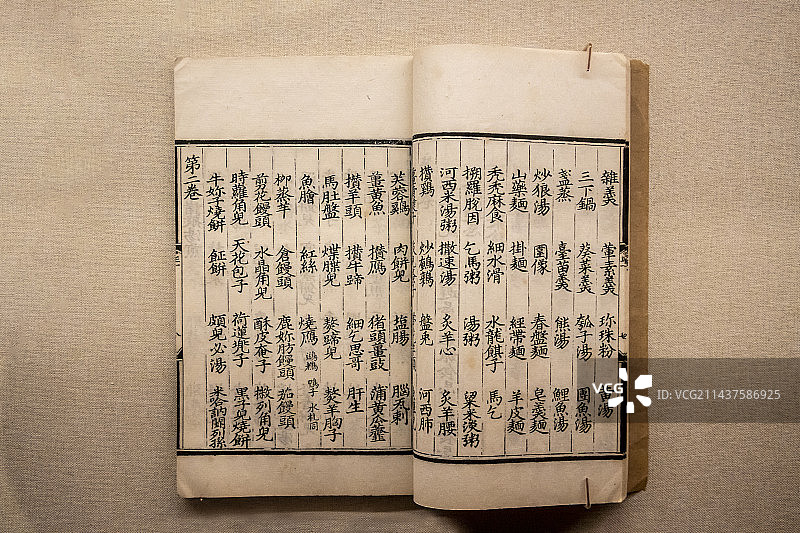 雜羹 葷素羹 珍珠粉 湯
三下鍋 葵菜羹 瓠子湯 團魚湯
盞蒸 臺苗羹 熊湯 鯉魚湯
炒狼湯 圍像 春盤麵 皂羹麵
山藥麵 掛麵 經帶麵 羊皮麵
禿禿麻食 細水滑 水龍餛子 馬乞
搠羅脫因 乞馬粥 湯粥 粱米淡粥
河西米湯粥 撒速湯 炙羊心 炙羊腰
攢鷄 炒鵪鶉 盤兎 河西肺
芙蓉鷄 肉餅兒 塩腸 腦瓦剌
薑黃魚 攢鴈 猪頭薑豉 蒲黃瓜虀
攢羊頭 攢牛蹄 細乞思哥 肝生
馬肚盤 熬蹄兒 熬羊胸子
魚膾 紅絲 燒鴈 鴨子
柳蒸羊 倉饅頭 鹿妳肪饅頭 茄饅頭
剪花饅頭 水晶角兒 酥皮奄子 撇列角兒
時蘿角兒 天花包子 荷蓮兠子 黑子兒燒餅
牛妳子燒餅 鉦餅 頗兒必湯 米哈訥關列孫
第二卷
VCG
VCG211437586925